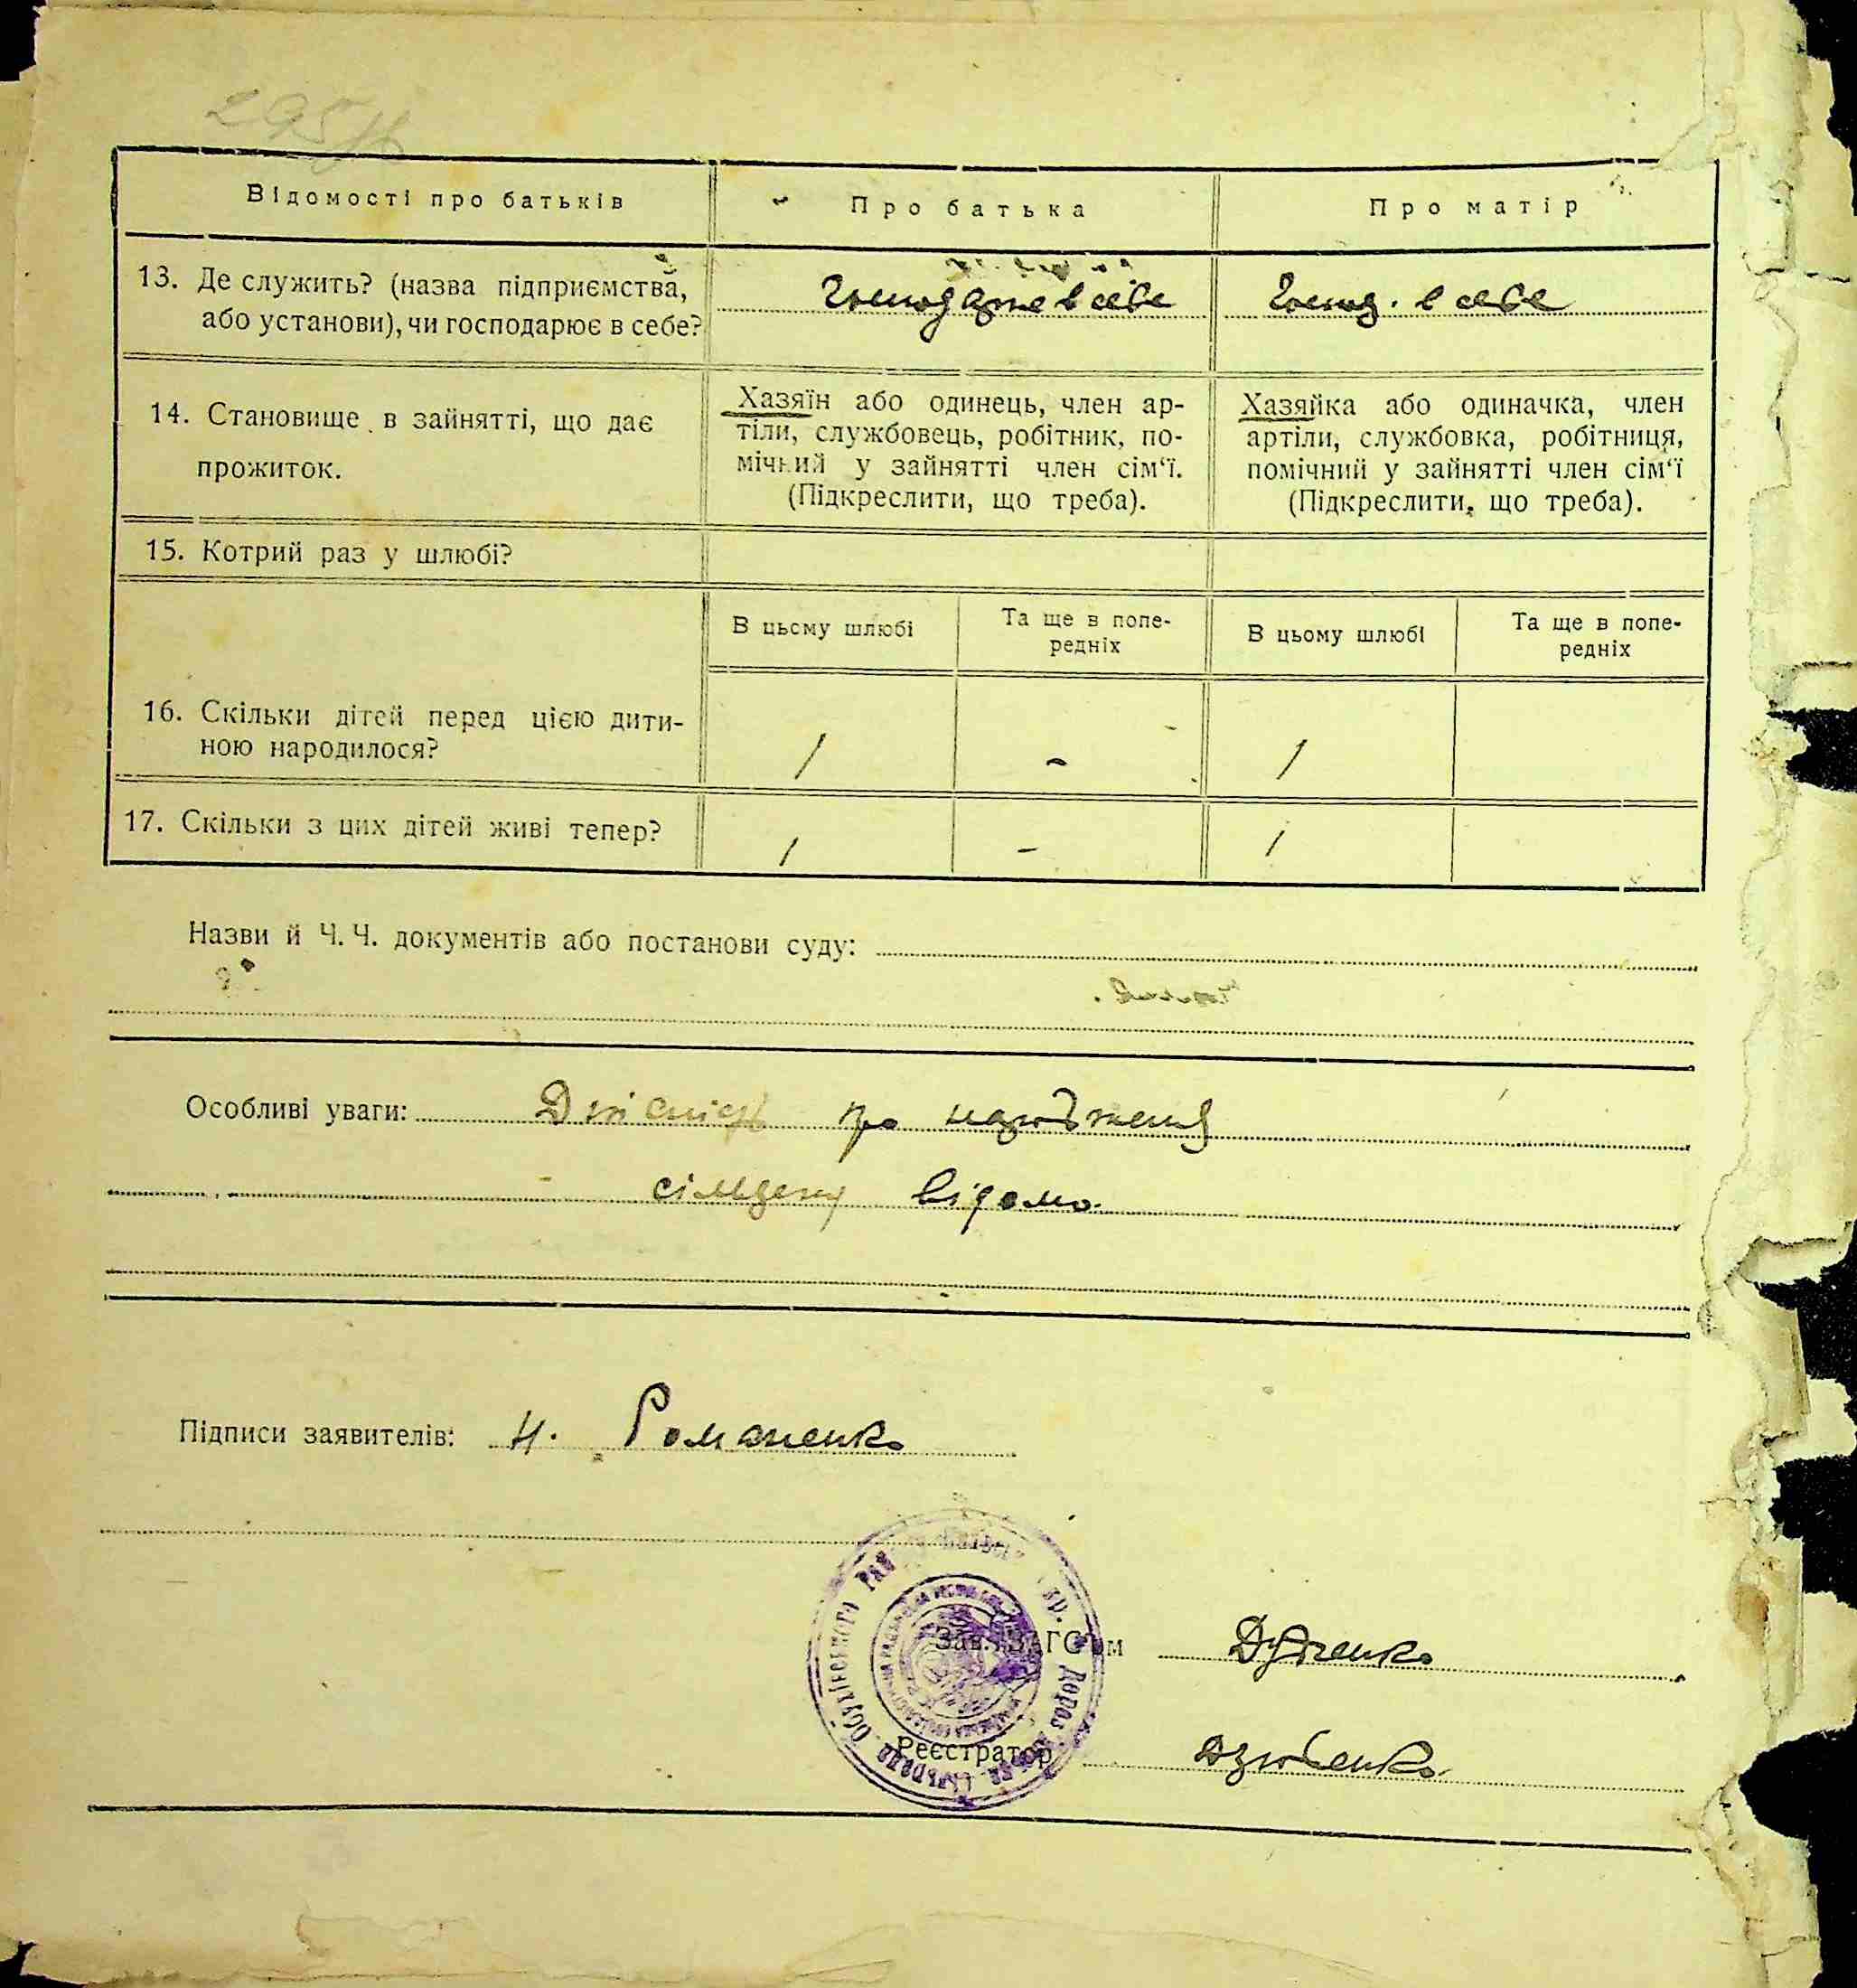 Відомості про батьків
Про батька
Про матір
13. Де служить? (назва підприємства,
або установи), чи господарює в себе?
Господарює в себе
Господ. в себе
14. Становище в зайнятті, що дає
прожиток.
Хазяїн або одинець, член ар-
тіли, службовець, робітник, по-
мічний у зайнятті член сім'ї.
(Підкреслити, що треба).
Хазяйка або одиначка, член
артіли, службовка, робітниця,
помічний у зайнятті член сім'ї
(Підкреслити, що треба).
15. Котрий раз у шлюбі?
В цьому шлюбі
Та ще в попе-
редніх
В цьому шлюбі
Та ще в попе-
редніх
16. Скільки дітей перед цією дити-
ною народилося?
1
-
1
17. Скільки з цих дітей живі тепер?
1
-
1
Назви й Ч. Ч. документів або постанови суду:
Особливі уваги: Дійсність про народження
відомо.
Підписи заявителів: Н. Романенко
Зав. ЗАГС'ом
Реєстратор Дзюбенко